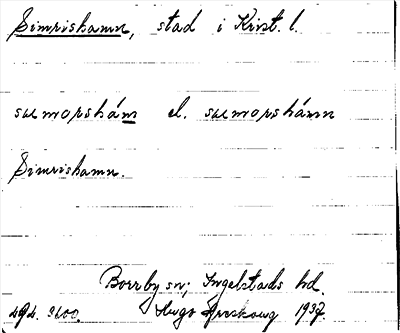 Simrishamn, stad i Krist. l.
sumorshám el. sumorshámn
Simrishamn.
Borrby sn; Ingelstads hd.
Hugo Areskoug 1937.